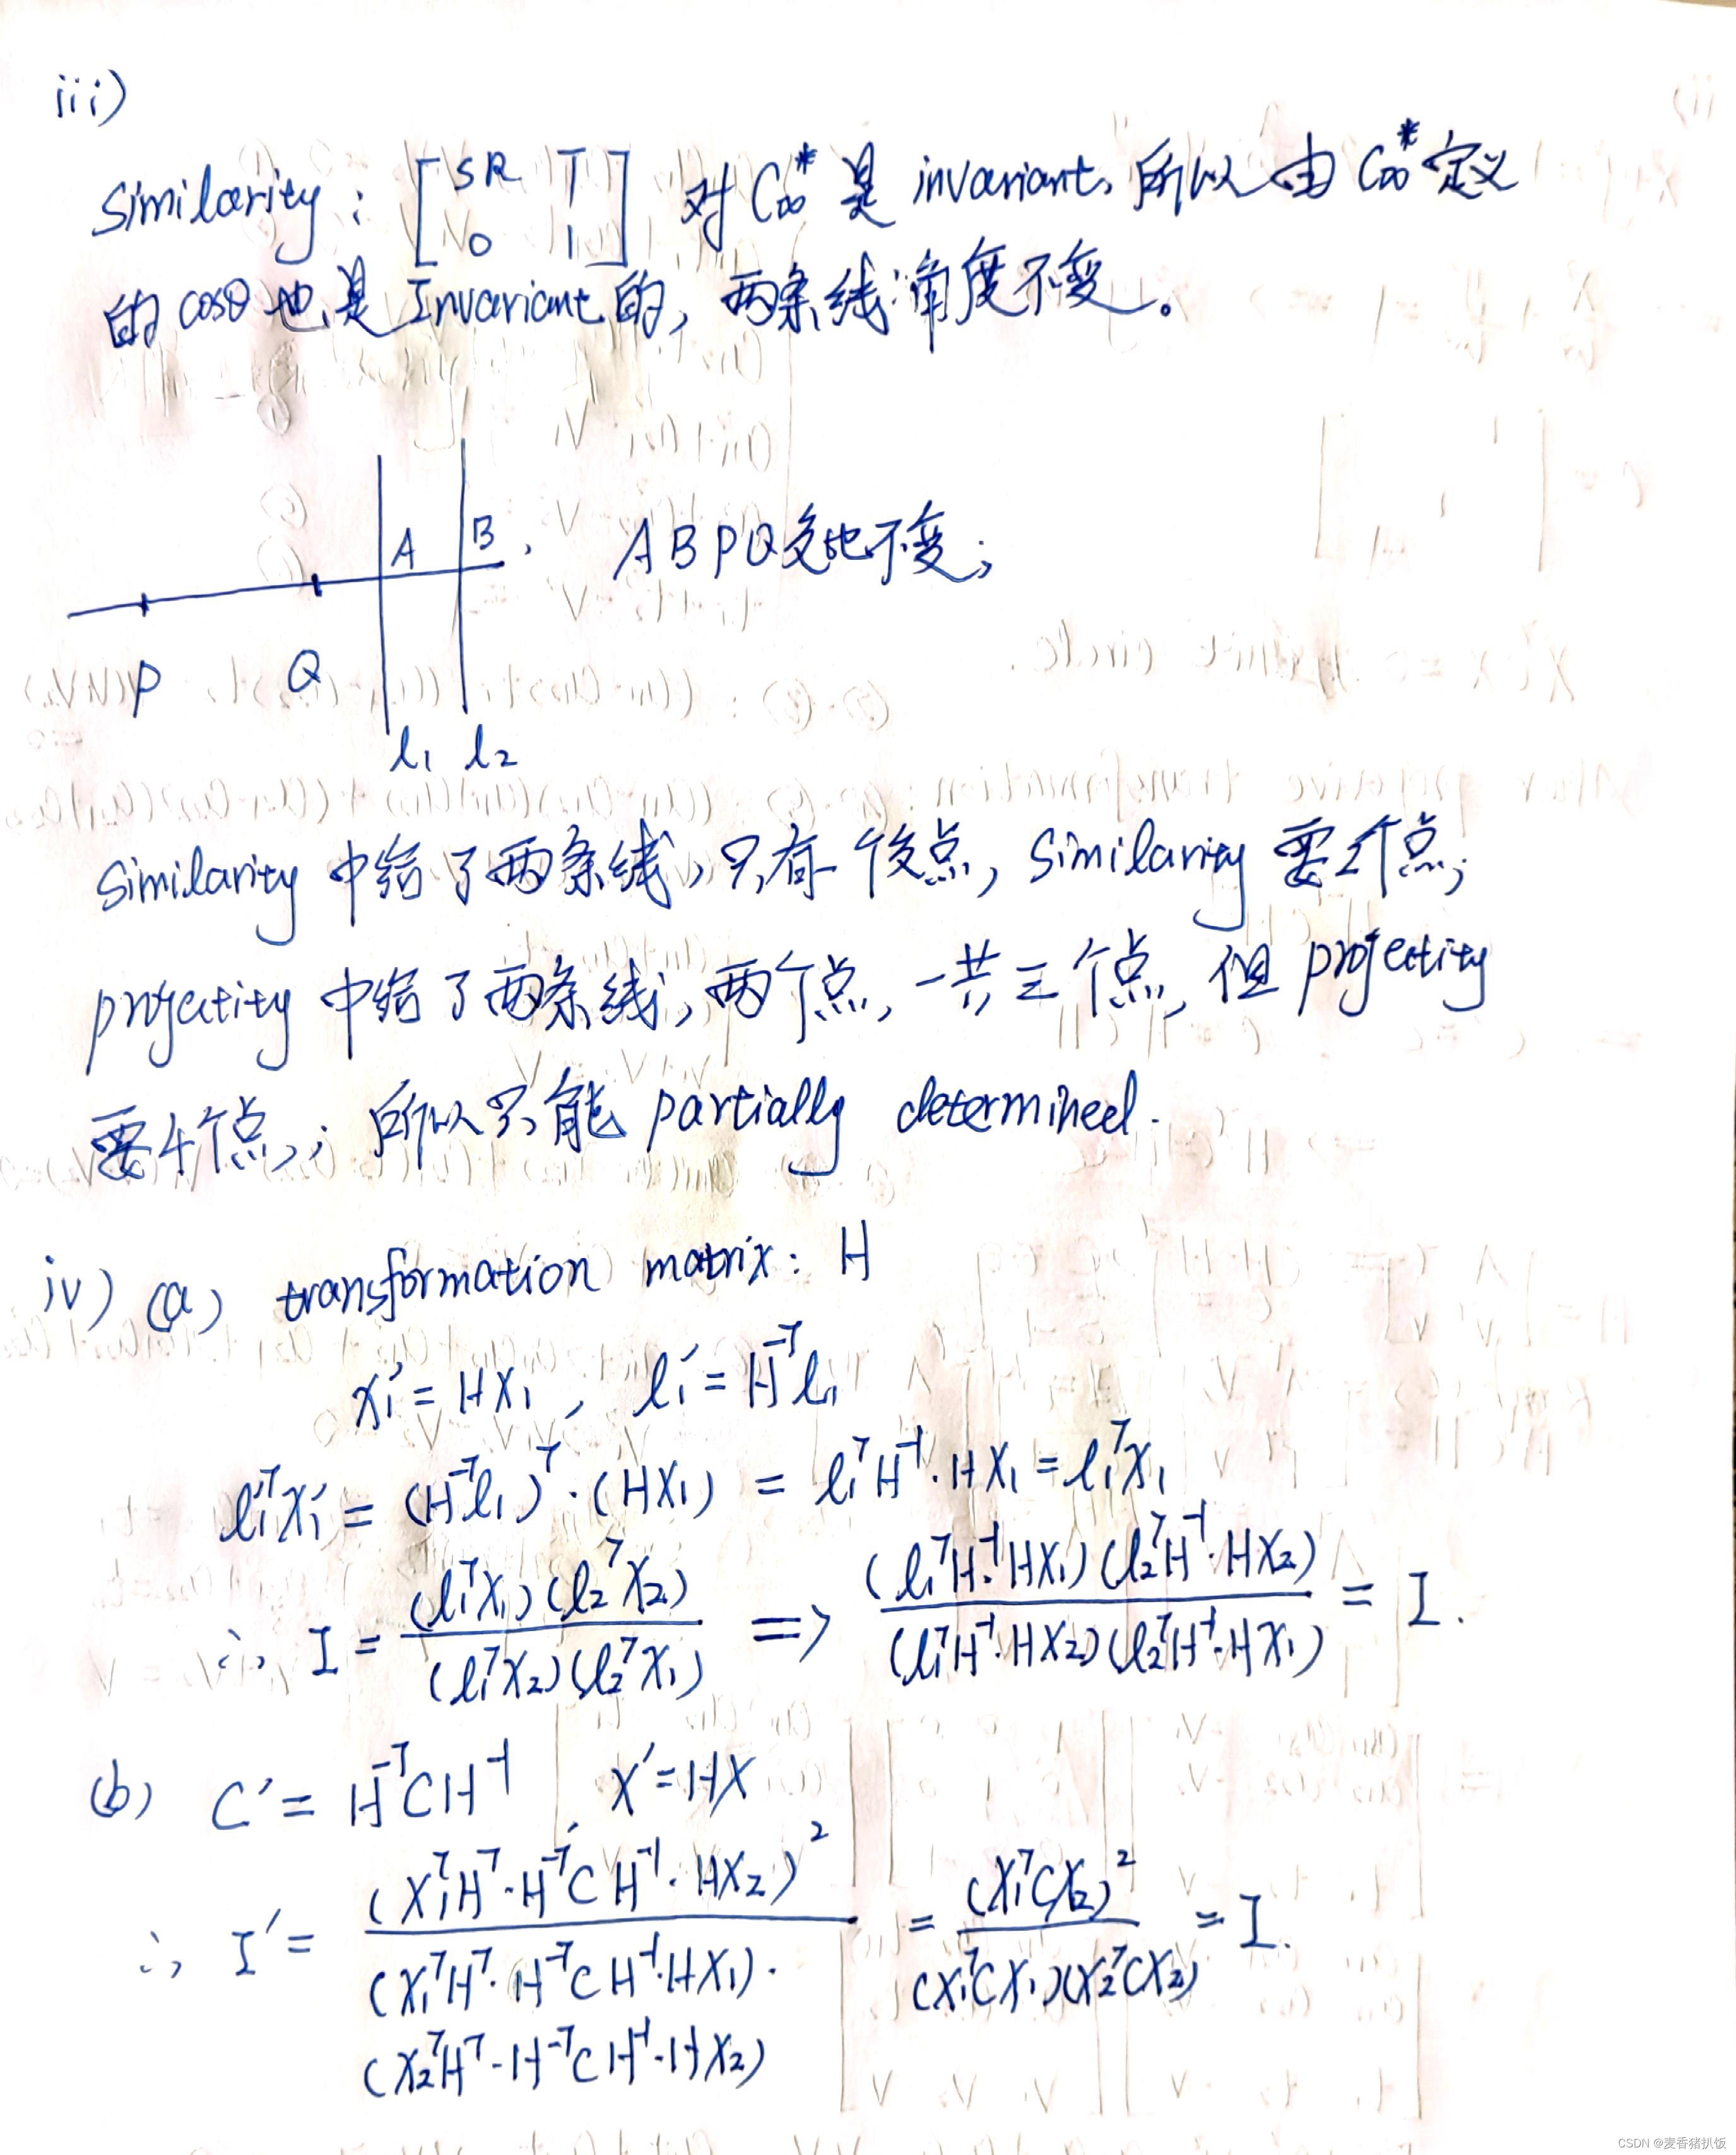 iii)
Similarity: [ SR T
0 1 ] 对 C∞* 是 invariant, 所以由 C∞* 定义
的 cosθ 也是 Invariant 的, 两条线角度不变。
A B , ABPQ交比不变;
P Q
l₁ l₂
Similarity 中给了两条线, 只有一个交点, Similarity 要2个点;
projectity 中给了两条线, 两个点, 一共三个点, 但 projectity
要4个点,; 所以只能 partially determined.
iv) (a) transformation matrix: H
x₁' = Hx₁ , l₁' = H⁻ᵀl₁
l₁'ᵀx₁' = (H⁻ᵀl₁)ᵀ·(Hx₁) = l₁ᵀH⁻¹·Hx₁ = l₁ᵀx₁
∴ I = (l₁ᵀx₁)(l₂ᵀx₂) / (l₁ᵀx₂)(l₂ᵀx₁) => (l₁ᵀH⁻¹·Hx₁)(l₂ᵀH⁻¹·Hx₂) / (l₁ᵀH⁻¹·Hx₂)(l₂ᵀH⁻¹·Hx₁) = I.
(b) C' = H⁻ᵀCH⁻¹, x' = Hx
∴ I' = (x₁ᵀHᵀ·H⁻ᵀCH⁻¹·Hx₂)² / (x₁ᵀHᵀ·H⁻ᵀCH⁻¹·Hx₁)· = (x₁ᵀCx₂)² / (x₁ᵀCx₁)(x₂ᵀCx₂) = I.
(x₂ᵀHᵀ·H⁻ᵀCH⁻¹·Hx₂)
CSDN @麦香猪扒饭